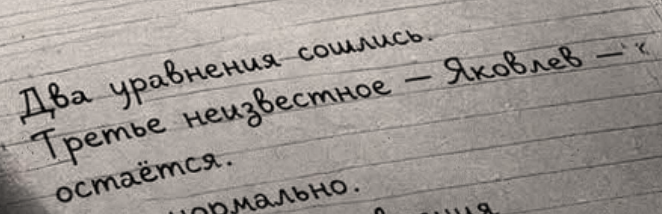 Два уравнения сошлись.
Третье неизвестное — Яковлев —
остаётся.
нормально.